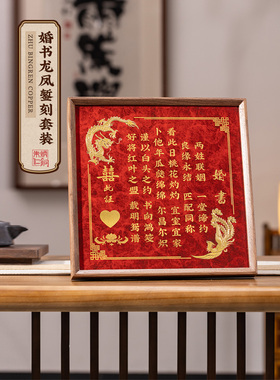 婚书龙凤錾刻套装
ZHU BINGREN COPPER
朱炳仁铜
婚書
两姓联姻 一堂缔约
良缘永结 匹配同称
看此日桃花灼灼 宜室宜家
卜他年瓜瓞绵绵 尔昌尔炽
谨以白头之约 书向鸿笺
好将红叶之盟 载明鸳谱
囍
此证